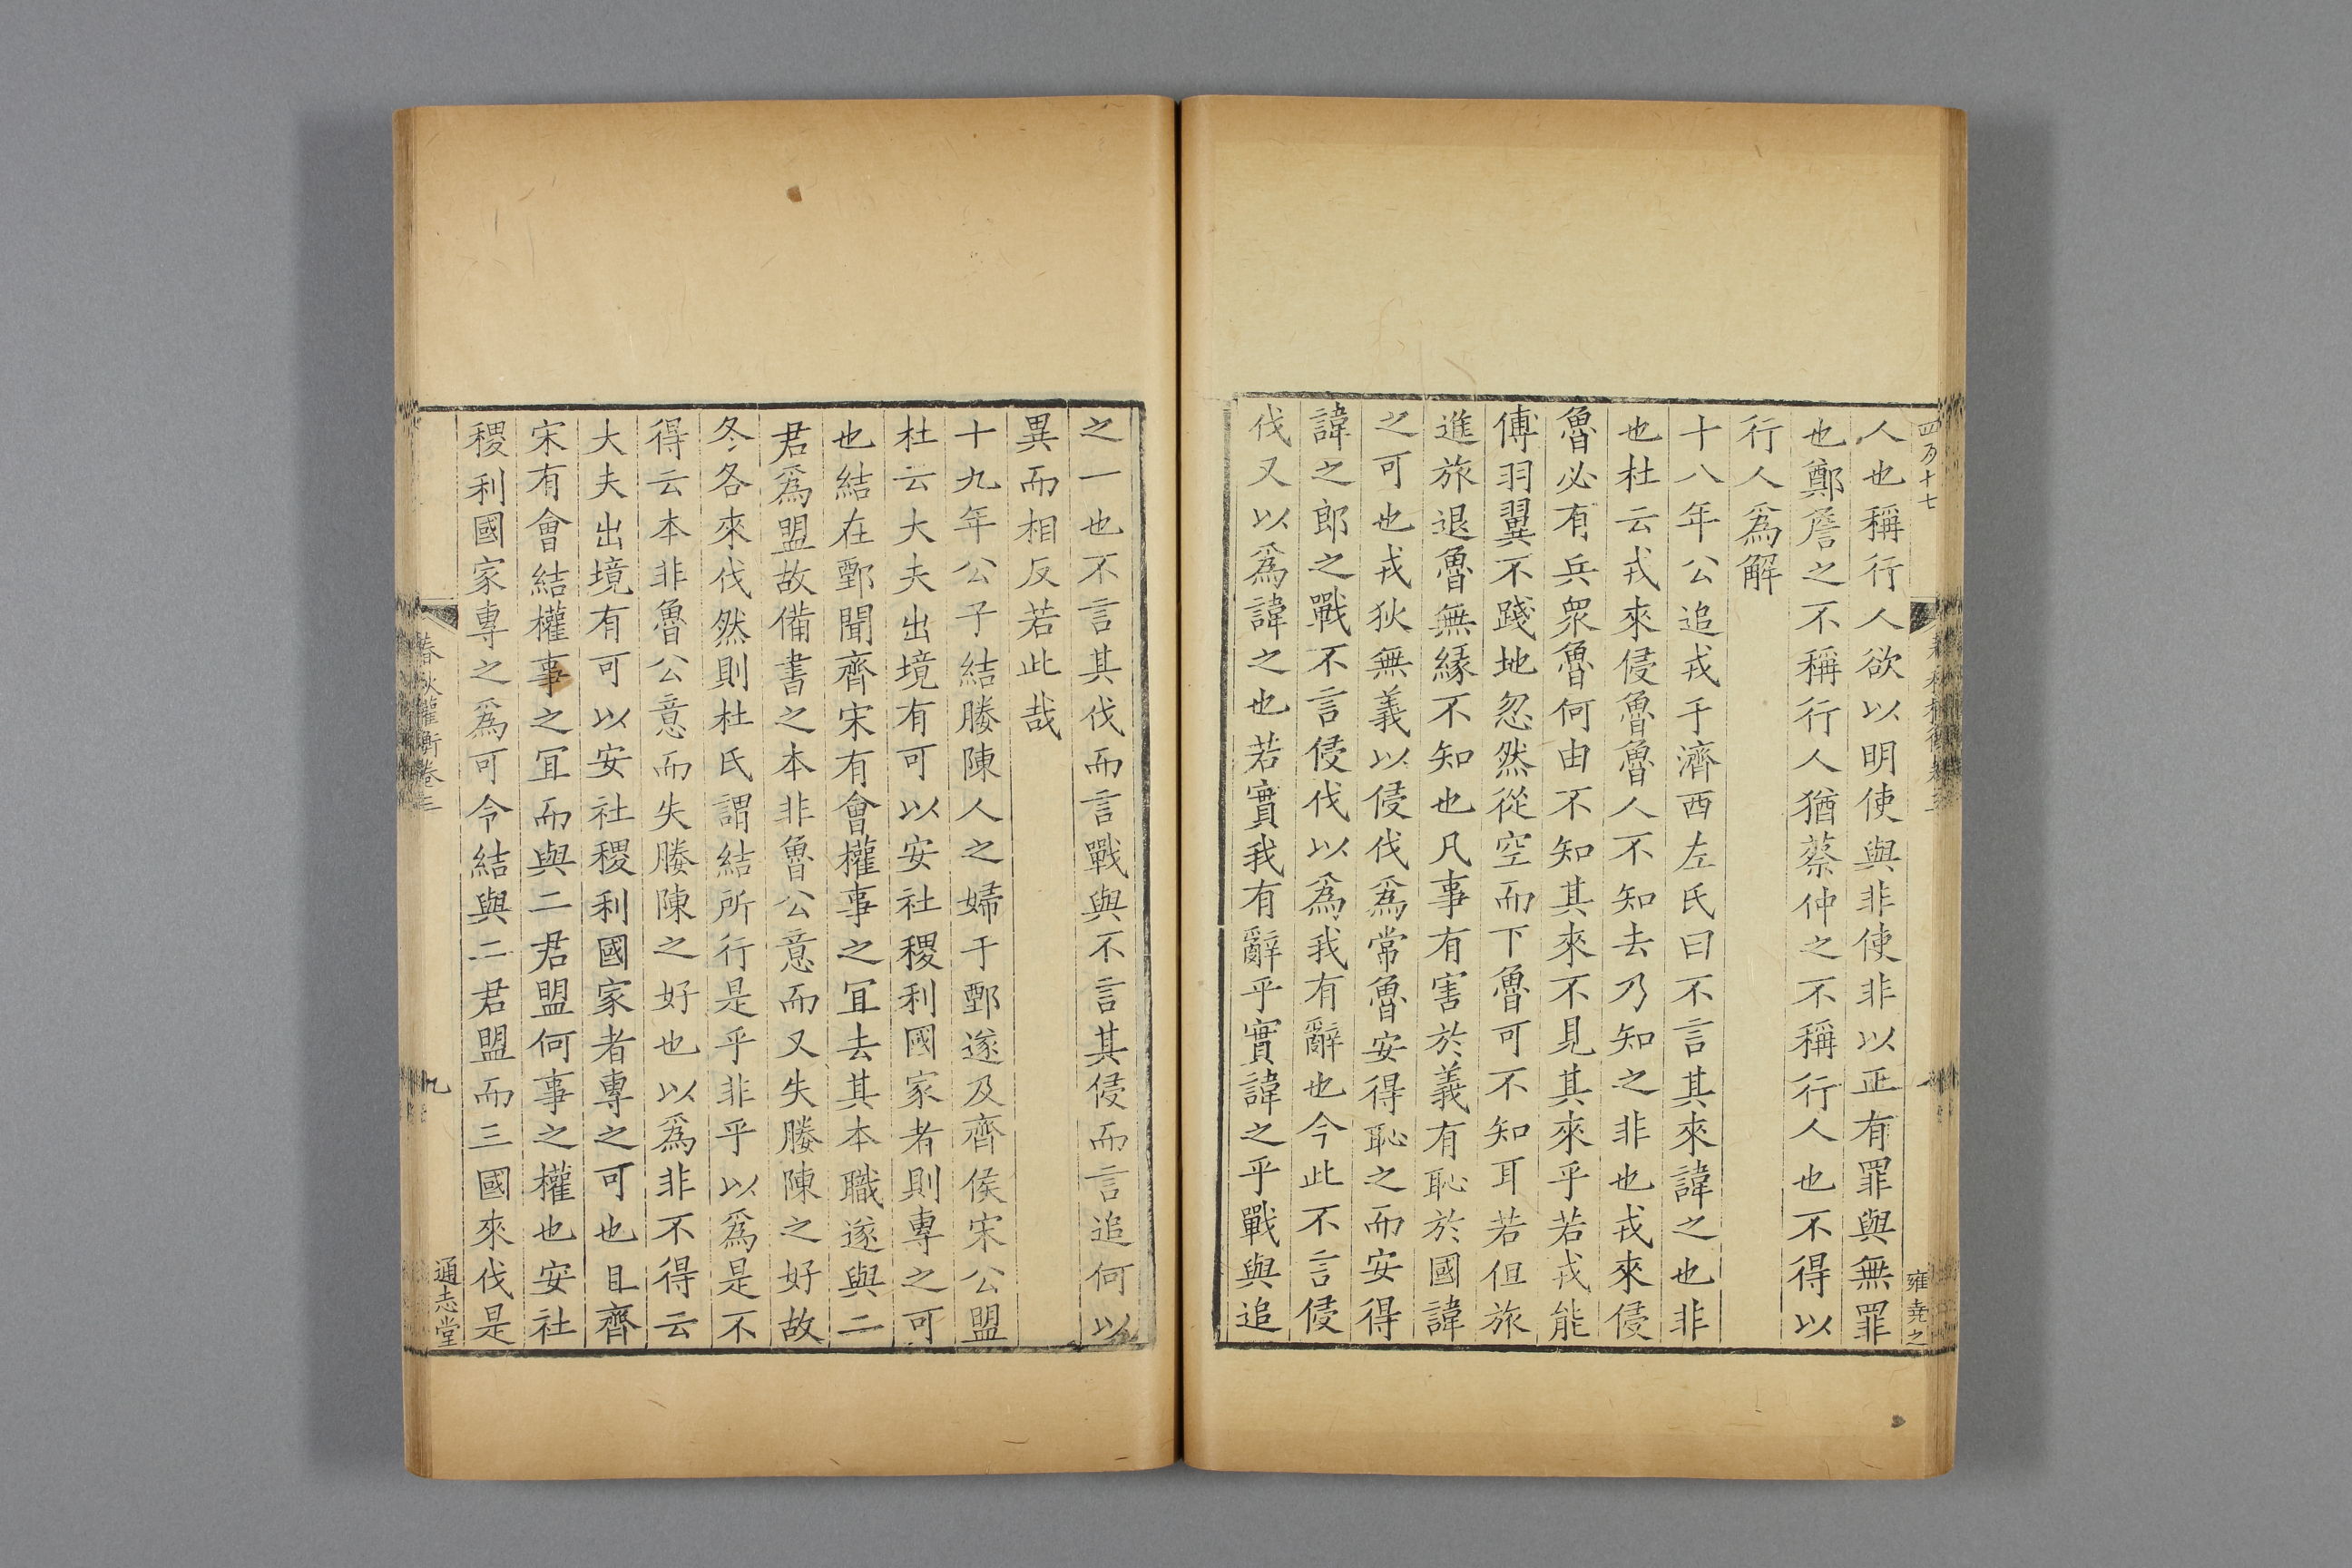 四百十七
人也稱行人欲以明使與非使非以正有罪與無罪
也鄭詹之不稱行人猶蔡仲之不稱行人也不得以
行人爲解
十八年公追戎于濟西左氏曰不言其來諱之也非
也杜云戎來侵魯魯人不知去乃知之非也戎來侵
魯必有兵衆魯何由不知其來不見其來乎若戎能
傅羽翼不踐地忽然從空而下魯可不知耳若但旅
進旅退魯無緣不知也凡事有害於義有恥於國諱
之可也戎狄無義以侵伐爲常魯安得恥之而安得
諱之郎之戰不言侵伐以爲我有辭也今此不言侵
伐又以爲諱之也若實我有辭乎實諱之乎戰與追
雍堯之
之一也不言其伐而言戰與不言其侵而言追何以
異而相反若此哉
十九年公子結媵陳人之婦于鄄遂及齊侯宋公盟
杜云大夫出境有可以安社稷利國家者則專之可
也結在鄄聞齊宋有會權事之冝去其本職遂與二
君爲盟故備書之本非魯公意而又失媵陳之好故
冬各來伐然則杜氏謂結所行是乎非乎以爲是不
得云本非魯公意而失媵陳之好也以爲非不得云
大夫出境有可以安社稷利國家者專之可也且齊
宋有會結權事之冝而與二君盟何事之權也安社
稷利國家專之爲可令結與二君盟而三國來伐是
春秋權衡卷三
九
通志堂